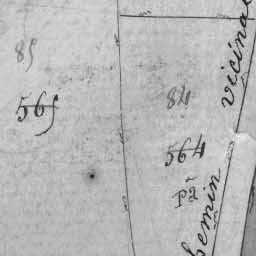 85
565
84
564
P2
chemin vicinal